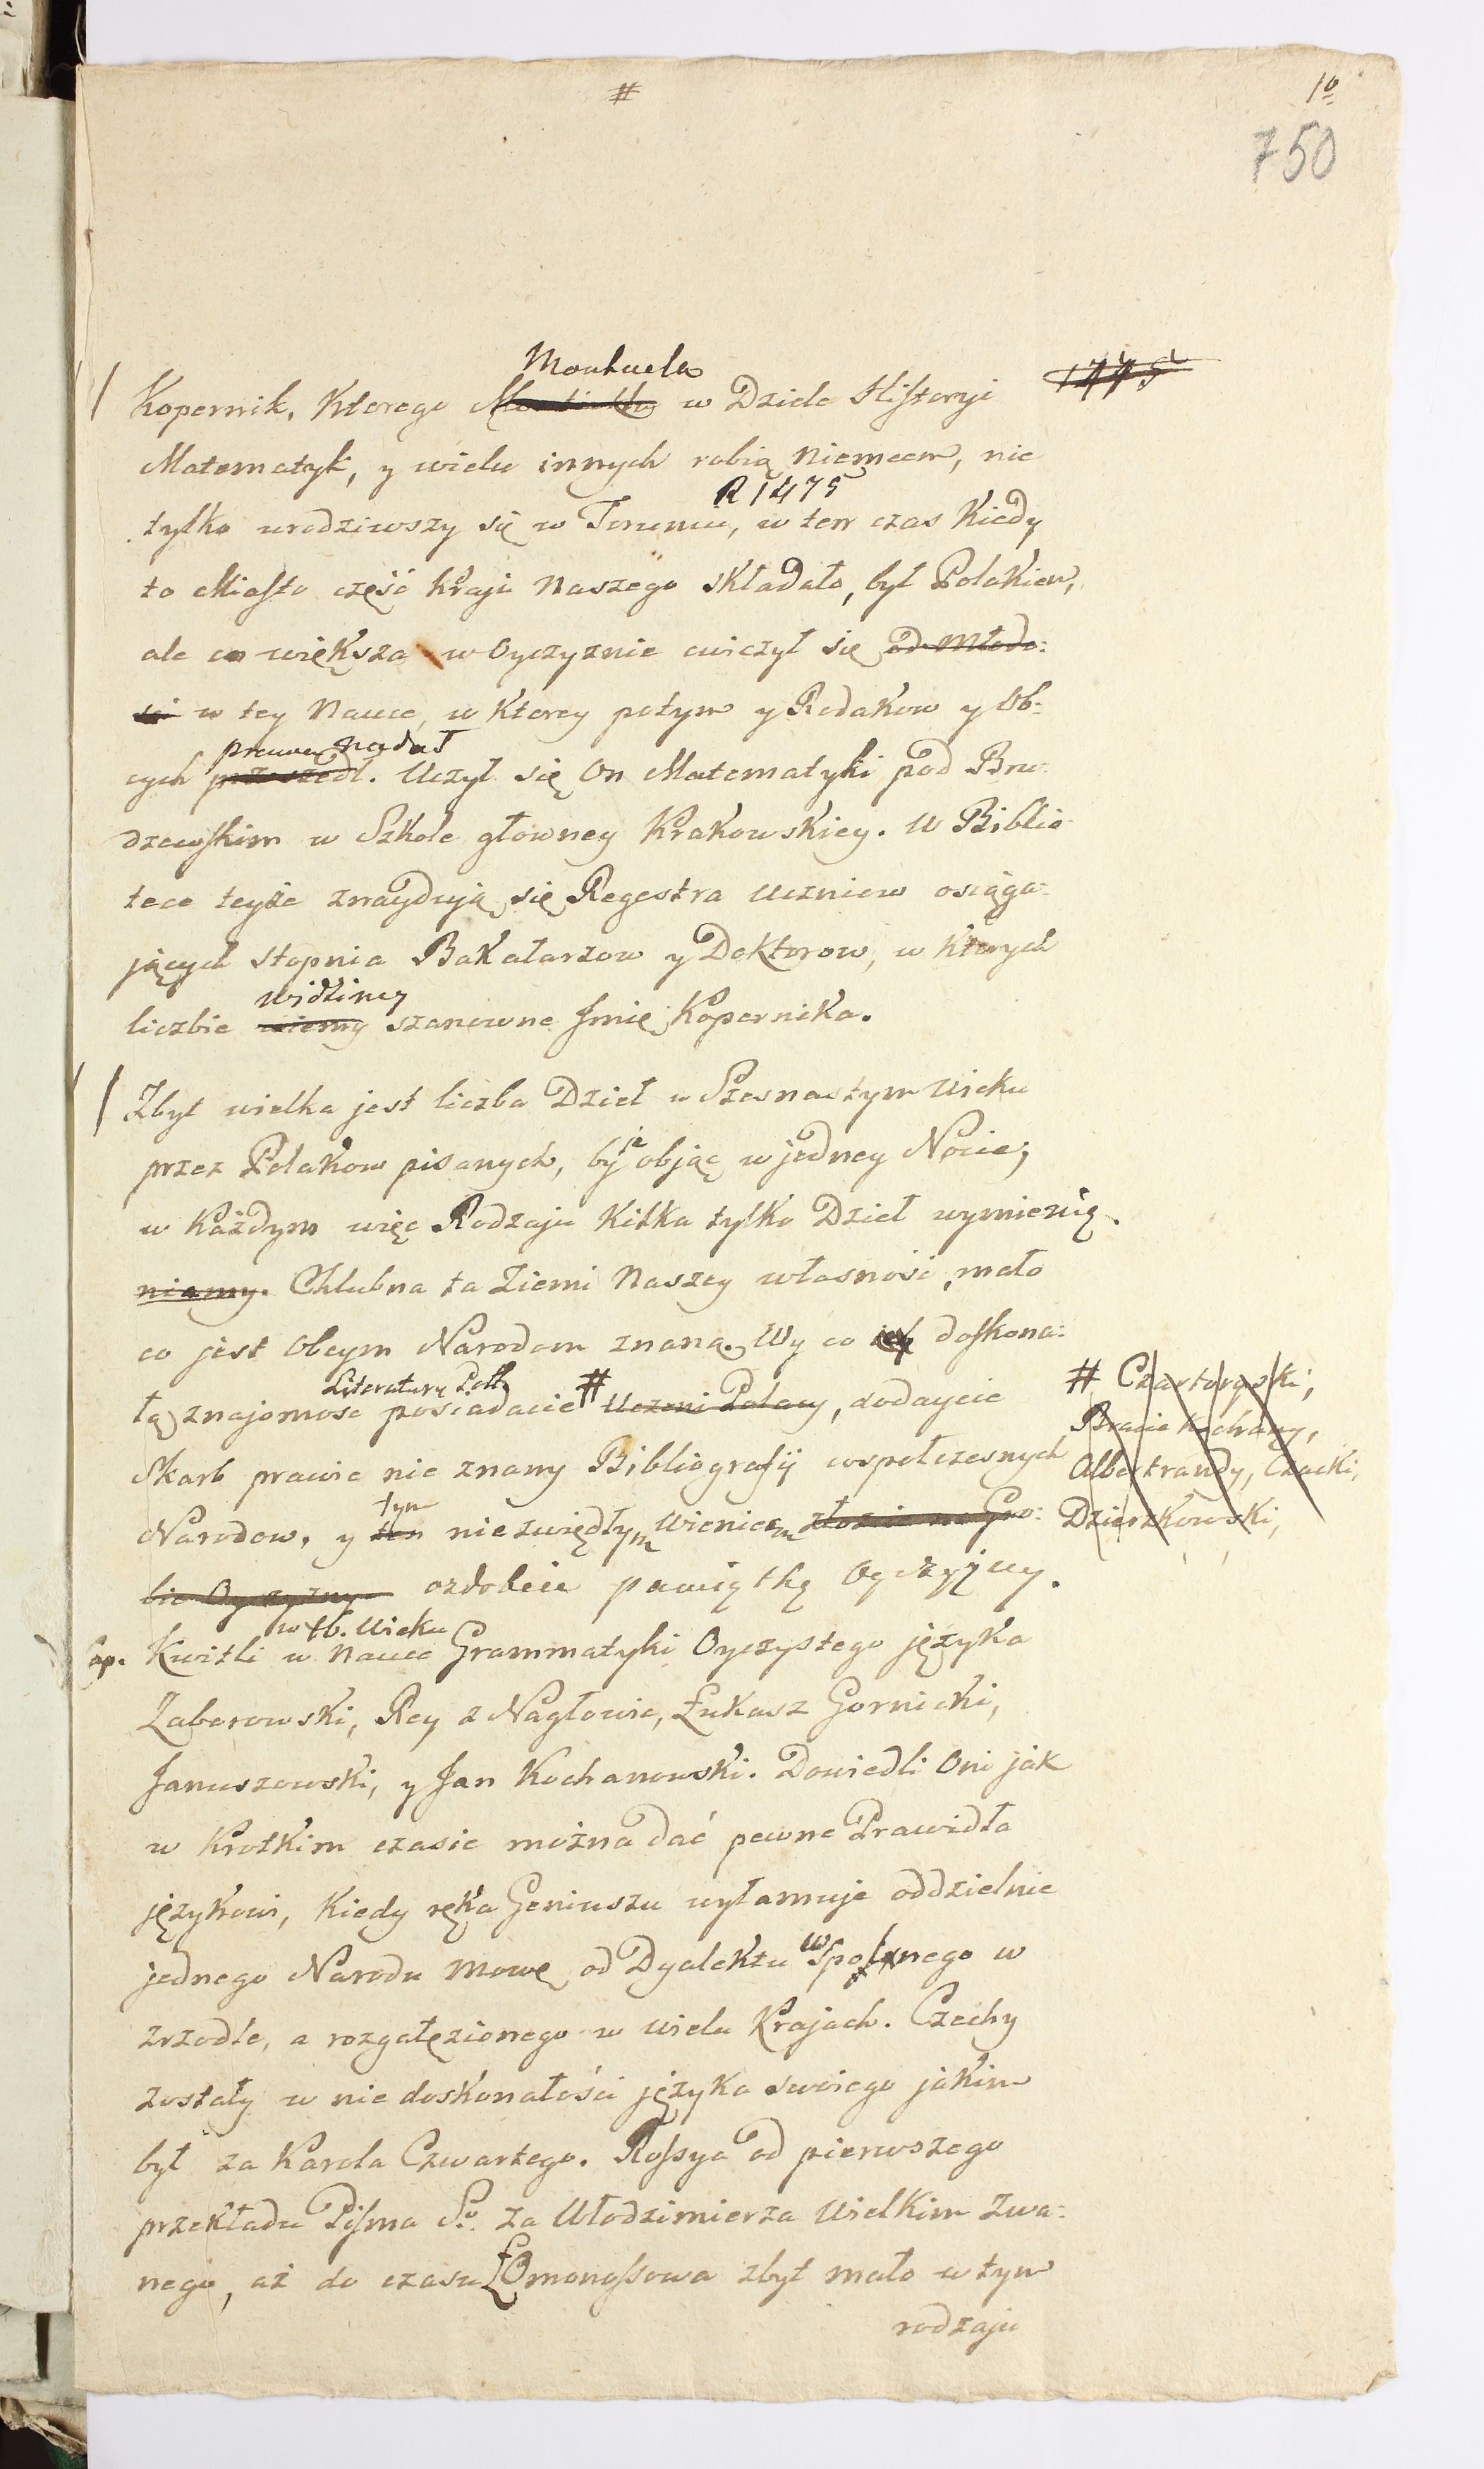 #
1º
750
Montucla
Kopernik, Ktorego Montukla w Dziele Historyi
1475
Matematyk, y wielu innych robią Niemcem, nie
R 1475
tylko urodziwszy się w Toruniu, w ten czas Kiedy
to Miasto część Kraju Naszego składało, był Polakiem,
ale co większa w Oyczyznie cwiczył się od młodo:
ści w tey Nauce, w Ktorey potym y Rodakow y Ob:
prawa nadał
cych przeszedł. Uczył się On Matematyki pod Bru:
dzewskim w Szkole głowney Krakowskiey. W Biblio
tece teyże znaydują się Regestra Uczniow osiąga:
jących stopnia Bakałarzow y Doktorow, w Ktorych
widzimy
liczbie wiemy szanowne Jmię Kopernika.
Zbyt wielka jest liczba Dzieł w Szesnastym Wieku
je
przez Polakow pisanych, by objąć w jedney Nocie;
w Każdym więc Rodzaju Kilka tylko Dzieł wymienię.
niamy. Chlubna ta Ziemi Naszey własność, mało
co jest Obcym Narodom znaną. Wy co doskona:
Literatury Pol:
łą znajomość posiadacie # Uczeni Polacy, dodaycie
# Czartoryski,
Bracie Kochany,
Albertrandy, Czacki,
Dzierzkowski,
Skarb prawie nie znany Bibliografij wspołczesnych
tym
Narodow, y ten niezwiędłym Wieniem złożcie na Gro:
bie Oyczyzny ozdobcie pamiątkę Oyczyzny.
w 16. Wieku
ap. Kwitli w Nauce Grammatyki Oyczystego języka
Zaborowski, Rey z Nagłowic, Łukasz Gornicki,
Januszowski, y Jan Kochanowski. Dowiedli Oni jak
w Krotkim czasie można dać pewne Prawidła
językowi, Kiedy ręka Geniuszu wyłamuje oddzielnie
jednego Narodu Mowę od Dyalektu wspolnego w
zrzodle, a rozgałęzionego w wielu Krajach. Czechy
zostały w nie doskonałości języka swoiego jakim
był za Karola Czwartego. Rossya od pierwszego
przekładu Pisma Sº. za Włodzimierza Wielkim Zwa:
nego, aż do czasu Łomonossowa zbyt mało w tym
rodzaju